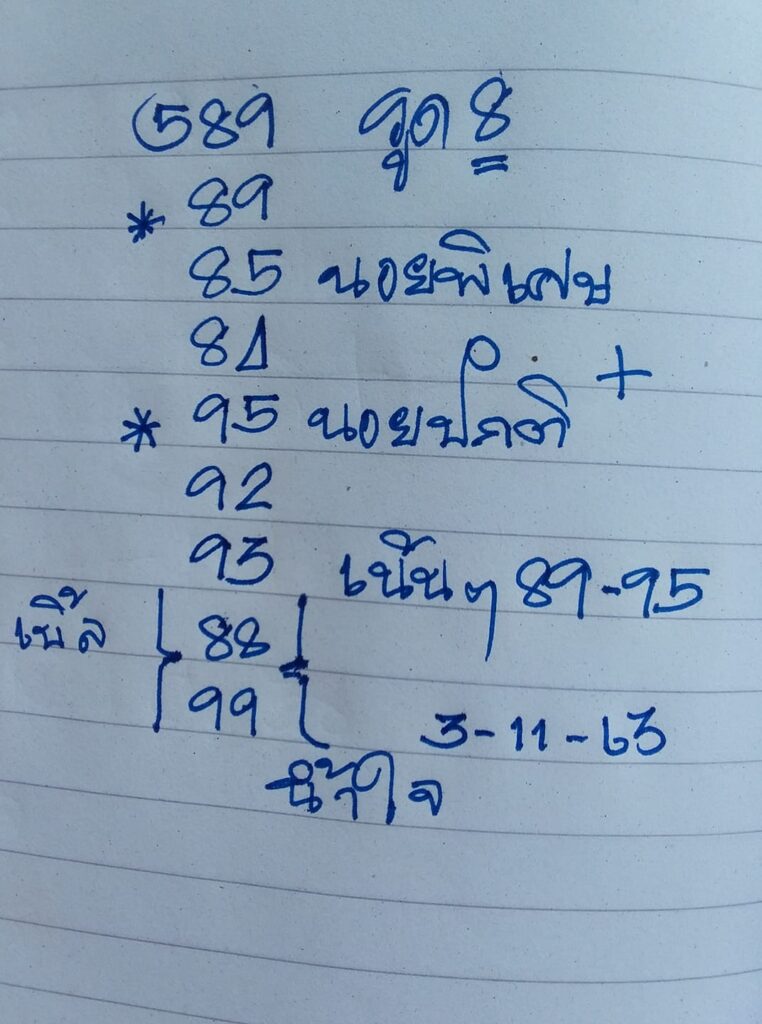 589 รูด 8
* 89
85 นอยพิเศษ
84
* 95 นอยปกติ +
92
93 เน้นๆ 89-95
เบิ้ล { 88
99
3-11-63
น้ำใจ